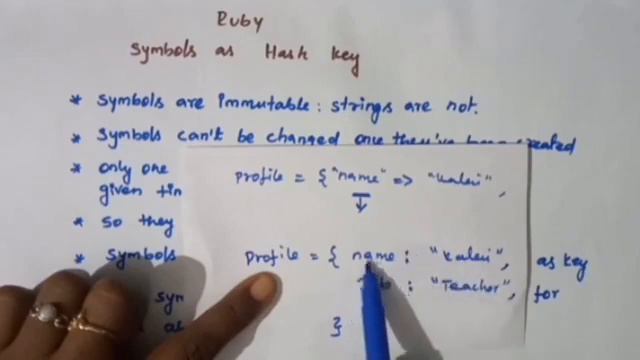 Ruby
Symbols as Hash key
* Symbols are Immutable: strings are not.
* Symbols can't be changed once they've been created
* only one
given
* so they
* symbols as key
for
profile = { "name" => "Kalai",
profile = { name : "Kalai",
: "Teacher",
}